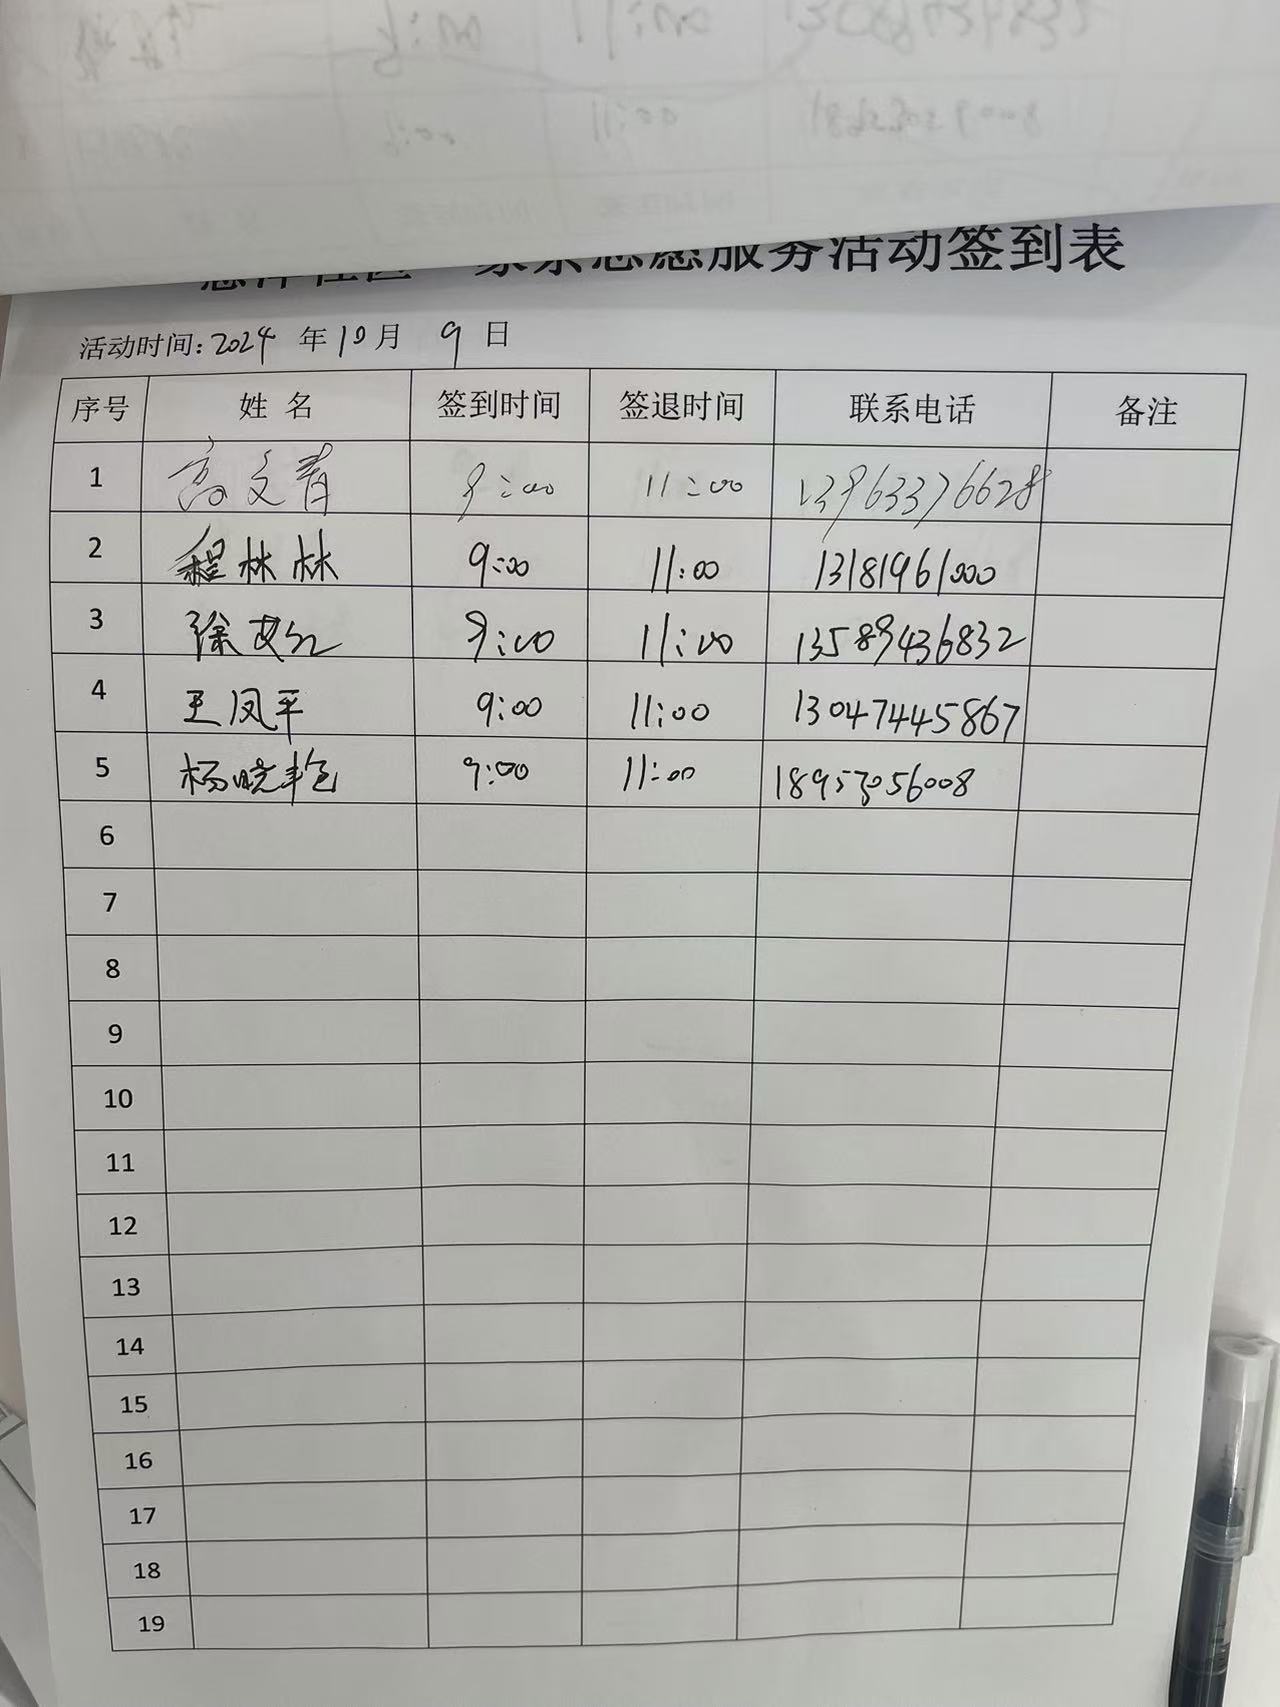 服务活动签到表
活动时间:2024 年 10 月 9 日
序号 姓 名 签到时间 签退时间 联系电话 备注
1 高文青 9:00 11:00 13963376628
2 程林林 9:00 11:00 13181961000
3 徐 9:00 11:00 13589436832
4 王凤平 9:00 11:00 13047445867
5 杨晓艳 9:00 11:00 18953056008
6
7
8
9
10
11
12
13
14
15
16
17
18
19